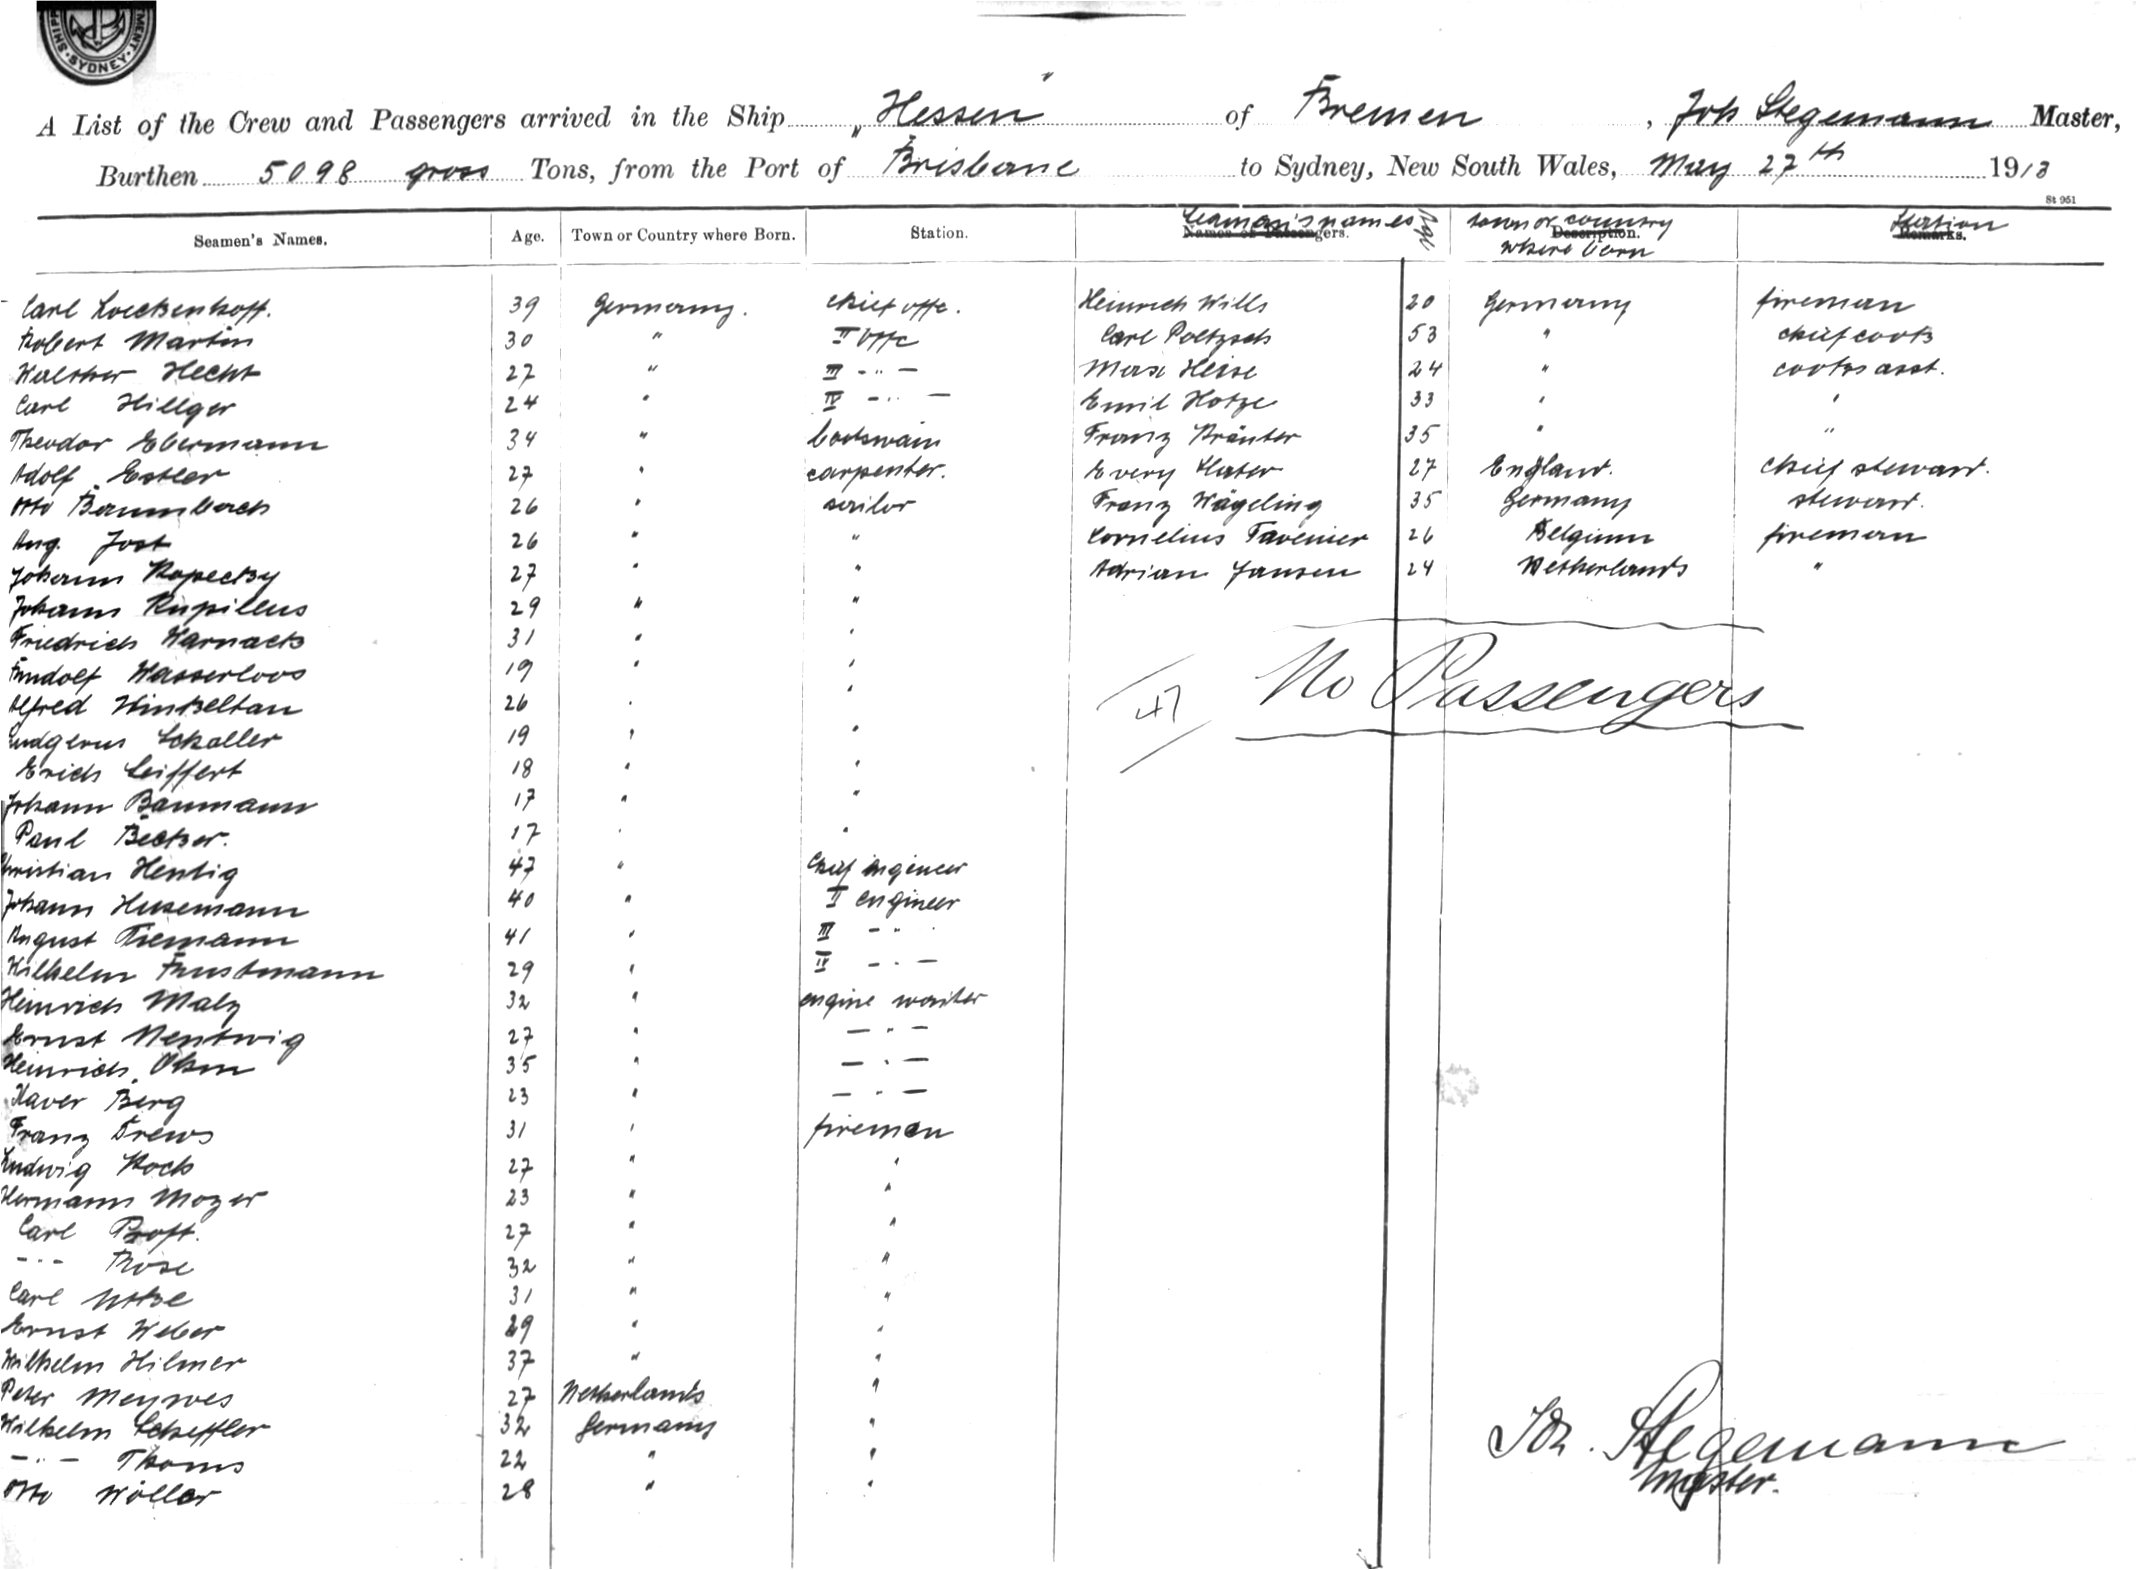 SHIP
SYDNEY
MENT.
A List of the Crew and Passengers arrived in the Ship „Hessen" of Bremen, Joh Stegemann Master,
Burthen 5098 gross Tons, from the Port of Brisbane to Sydney, New South Wales, May 27th 1913
St 951
Seamen's Names. Age. Town or Country where Born. Station. Names of Passengers. Seaman's names Age Description. town or country where born Remarks. Station
Carl 39 Germany. chief offc. Heinrich Wills 20 Germany fireman
Robert Martin 30 " II offc Carl Poltzsch 53 " chief cook
Walther Hecht 27 " III -"- Max Heise 24 " cooks asst.
Carl Hillger 24 " IV -"- Emil Hotze 33 " "
Theodor Ebermann 34 " boatswain Franz Kräuter 35 " "
Adolf Estler 27 " carpenter. Every Hater 27 England. chief steward.
Otto Baumbach 26 " sailor Franz Wägeling 35 Germany steward.
Aug. Jost 26 " " Cornelius Tavenier 26 Belgium fireman
Johann Kopecky 27 " " Adrian Jansen 24 Netherlands "
Johann Rupilius 29 " "
Friedrich Warnack 31 " "
Rudolf Wasserloos 19 " "
Alfred Winkeltau 26 " "
Ludgerus Schaller 19 " "
Erich Seiffert 18 " "
Johann Baumann 17 " "
Paul Becker. 17 " "
No Passengers
Christian Hentig 47 " Chief engineer
Johann Husemann 40 " II engineer
August Tiemann 41 " III -"-
Wilhelm Frustmann 29 " IV -"-
Heinrich Malz 32 " engine waiter
Ernst Nentwig 27 " -"-
Heinrich Olsen 35 " -"-
Xaver Berg 23 " -"-
Franz Drews 31 " fireman
Ludwig Koch 27 " "
Hermann Mozer 23 " "
Carl Proft. 27 " "
-"- Rose 32 " "
Carl 31 " "
Ernst Weber 29 " "
Wilhelm Hilmer 37 " "
Peter Meywes 27 Netherlands "
Wilhelm Scheffler 32 Germany "
-"- Thoms 22 " "
Otto Wöller 28 " "
Joh. Stegemann
Master.